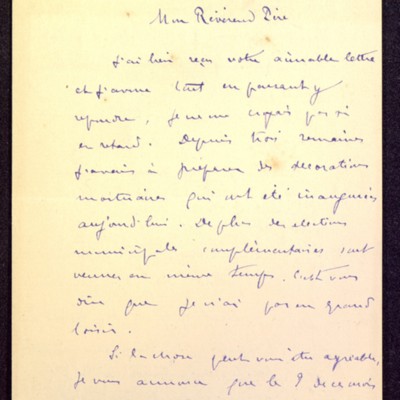 Mon Révérend Père
J'ai bien reçu votre aimable lettre
et j'avoue tout en pensant y
repondre, je ne me croyais pas si
en retard. Depuis trois semaines
j'avais à préparer des décorations
mortuaires qui ont été inaugurées
aujourd'hui. De plus des elections
municipale complémentaires sont
venues en même temps. C'est vous
dire que je n'ai pas eu grand
loisir.
Si la chose peut vous être agréable,
je vous annonce que le 9 de ce mois